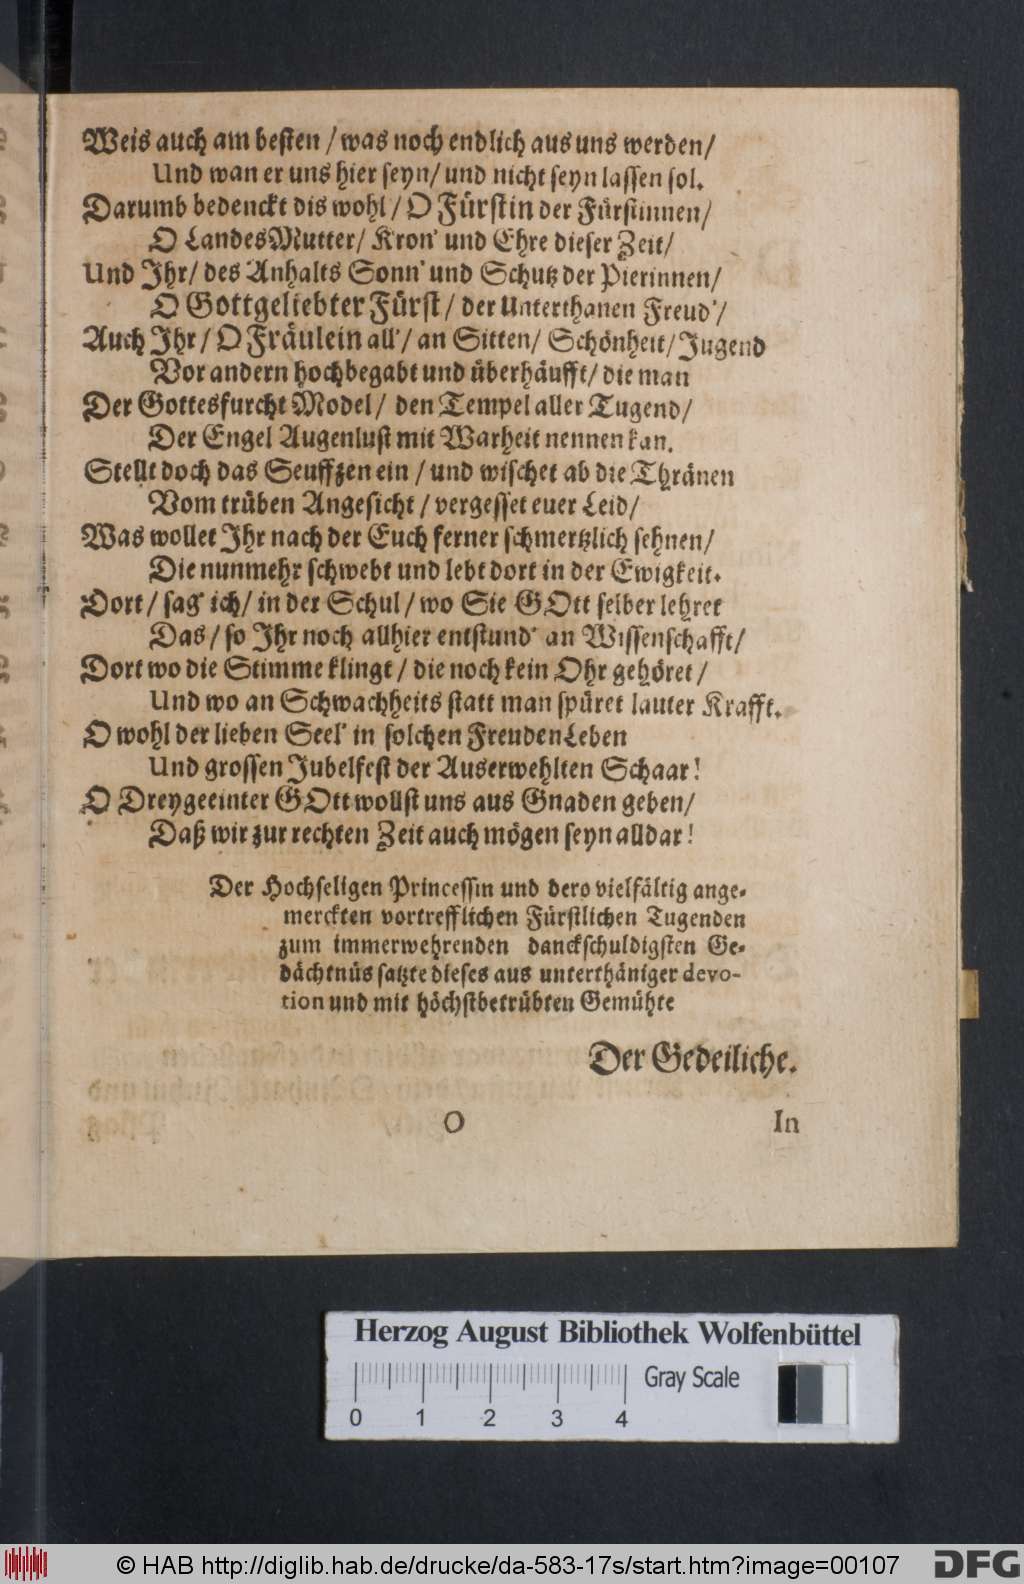 Weis auch am besten / was noch endlich aus uns werden /
Und wan er uns hier seyn / und nicht seyn lassen sol.
Darumb bedenckt dis wohl / O Fürstin der Fürstinnen /
O LandesMutter / Kron' und Ehre dieser Zeit /
Und Ihr / des Anhalts Sonn' und Schutz der Pierinnen /
O Gottgeliebter Fürst / der Unterthanen Freud' /
Auch Ihr / O Fräulein all' / an Sitten / Schönheit / Jugend
Vor andern hochbegabt und überhäufft / die man
Der Gottesfurcht Model / den Tempel aller Tugend /
Der Engel Augenlust mit Warheit nennen kan.
Stellt doch das Seuffzen ein / und wischet ab die Thränen
Vom trüben Angesicht / vergesset euer Leid /
Was wollet Ihr nach der Euch ferner schmertzlich sehnen /
Die nunmehr schwebt und lebt dort in der Ewigkeit.
Dort / sag' ich / in der Schul / wo Sie GOtt selber lehret
Das / so Ihr noch allhier entstund' an Wissenschafft /
Dort wo die Stimme klingt / die noch kein Ohr gehöret /
Und wo an Schwachheits statt man spüret lauter Krafft.
O wohl der lieben Seel' in solchen FreudenLeben
Und grossen Jubelfest der Auserwehlten Schaar!
O Dreygeeinter GOtt wollst uns aus Gnaden geben /
Daß wir zur rechten Zeit auch mögen seyn alldar!
Der Hochseligen Princessin und dero vielfältig ange-
merckten vortrefflichen Fürstlichen Tugenden
zum immerwehrenden danckschuldigsten Ge-
dächtnüs satzte dieses aus unterthäniger devo-
tion und mit höchstbetrübten Gemühte
Der Gedeiliche.
O In
Herzog August Bibliothek Wolfenbüttel
Gray Scale
0 1 2 3 4
© HAB http://diglib.hab.de/drucke/da-583-17s/start.htm?image=00107
DFG